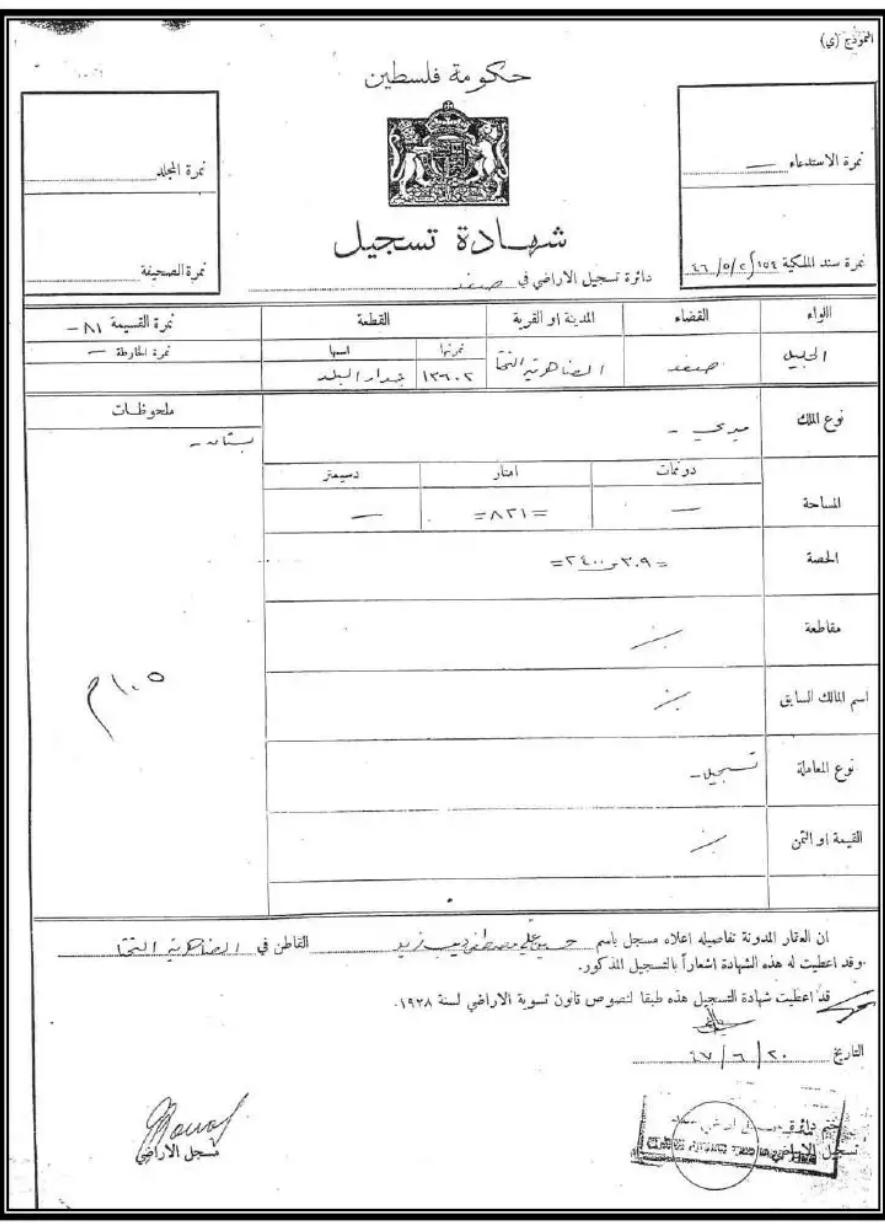 النموذج (ي)
حكومة فلسطين
نمرة الاستدعاء —
نمرة المجلد
شهادة تسجيل
نمرة سند الملكية ١٥٤/٥/٢/٤٦
نمرة الصحيفة
دائرة تسجيل الاراضي في صفد
اللواء
القضاء
المدينة او القرية
القطعة
نمرة القسيمة ٨١ -
نمرتها
اسمها
نمرة الخارطة —
الجليل
صفد
الضاهرية التحتا
١٣٦٠٢
البلد
ملحوظات
نوع الملك
ميري -
بستان -
دونمات
امتار
دسيمتر
المساحة
—
=٨٢١=
—
الحصة
=٣٠٩ و ٢٤٠٠=
مقاطعة
١٠٠٥م
اسم المالك السابق
نوع المعاملة
تسجيل -
القيمة او الثمن
ان العقار المدونة تفاصيله اعلاه مسجل باسم علي مصطفى ديب القاطن في الضاهرية التحتا
وقد اعطيت له هذه الشهادة اشعاراً بالتسجيل المذكور.
قد اعطيت شهادة التسجيل هذه طبقا لنصوص قانون تسوية الاراضي لسنة ١٩٢٨.
التاريخ ٢٠/٦/٤٧
ختم دائرة
تسجيل الاراضي
مسجل الاراضي